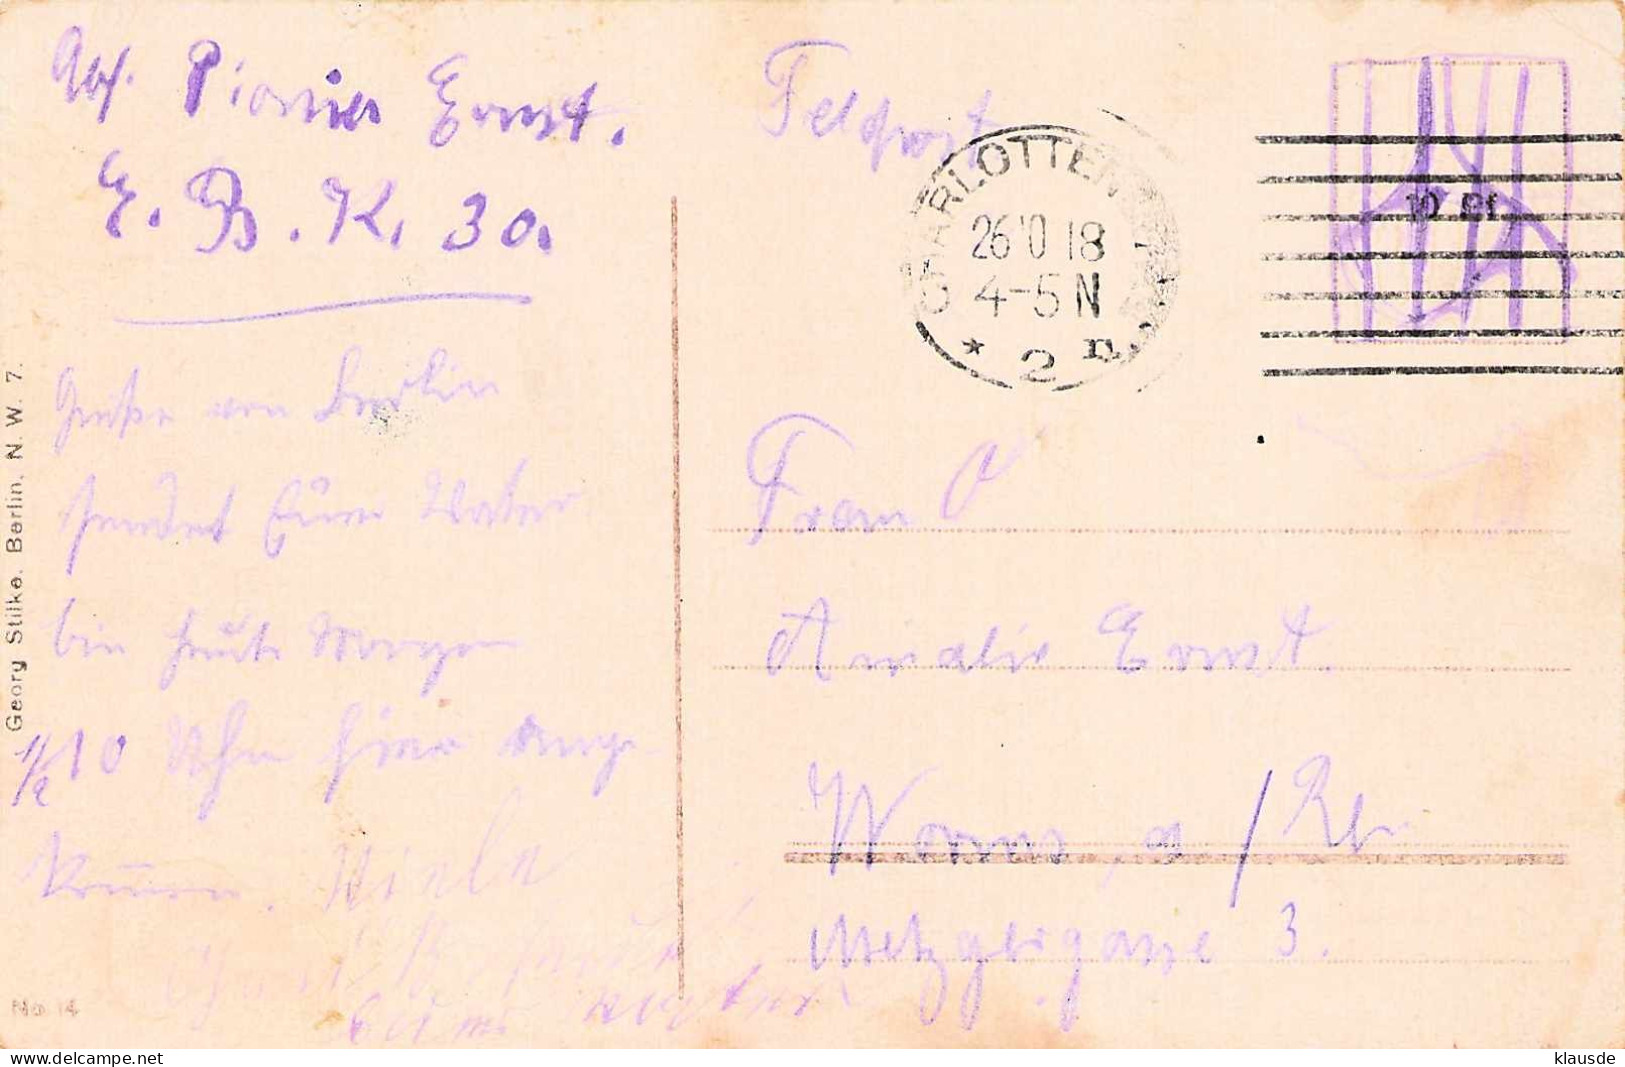 Abs. Pionier Ernst.
E. B. K. 30.
Grüße von Berlin
sendet Euer Vater
bin heute Morgen
1/2 10 Uhr hier ange-
kommen. Viele
Georg Stilke, Berlin, N. W. 7.
No 14
Feldpost
CHARLOTTENBURG
26 10 18
4-5 N
* 2 n.
10 Pf
Frau
Amalie Ernst.
Worms a/Rh
Metzgergasse 3.
klausde